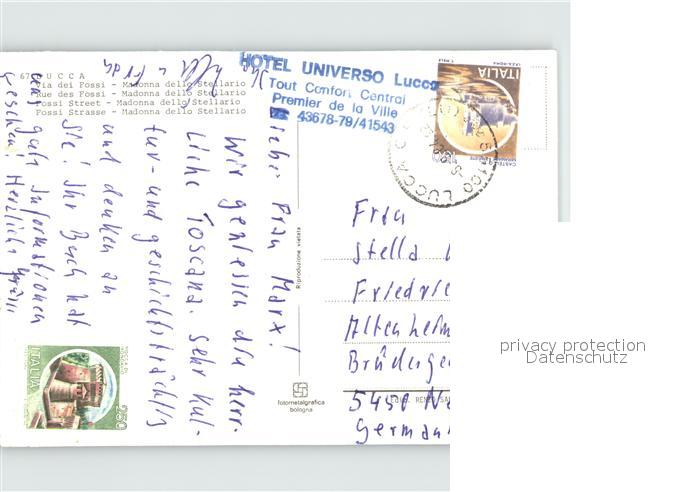 67 LUCCA
Via dei Fossi - Madonna dello Stellario
Rue des Fossi - Madonna dello Stellario
Fossi Street - Madonna dello Stellario
Fossi Strasse - Madonna dello Stellario
HOTEL UNIVERSO Lucca
Tout Confort Central
Premier de la Ville
43678-79/41543
Liebe Frau Marx!
Wir genießen die herr-
liche Toscana. Sehr kul-
tur- und geschichtsträchtig
und denken an
Sie! Ihr Buch hat
uns gute Informationen
gegeben! Herzliche Grüße
Ihre
Frau
Stella
Friedrie
Altenheim
Brüderge
5450 Ne
Germany
ITALIA
LUCCA
Riproduzione vietata
fotometalgrafica
bologna
ITALIA
250
privacy protection
Datenschutz